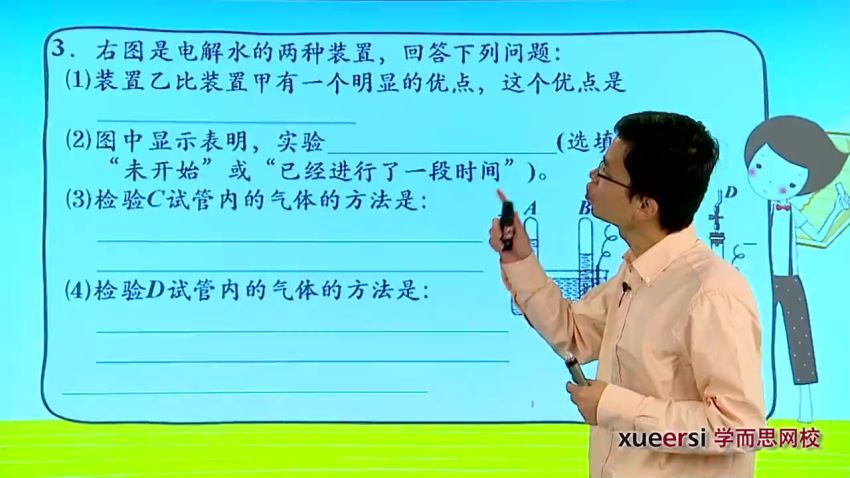 3. 右图是电解水的两种装置，回答下列问题：
(1)装置乙比装置甲有一个明显的优点，这个优点是
(2)图中显示表明，实验 (选填
“未开始”或“已经进行了一段时间”)。
(3)检验C试管内的气体的方法是：
A
B
D
(4)检验D试管内的气体的方法是：
1
xueersi 学而思网校